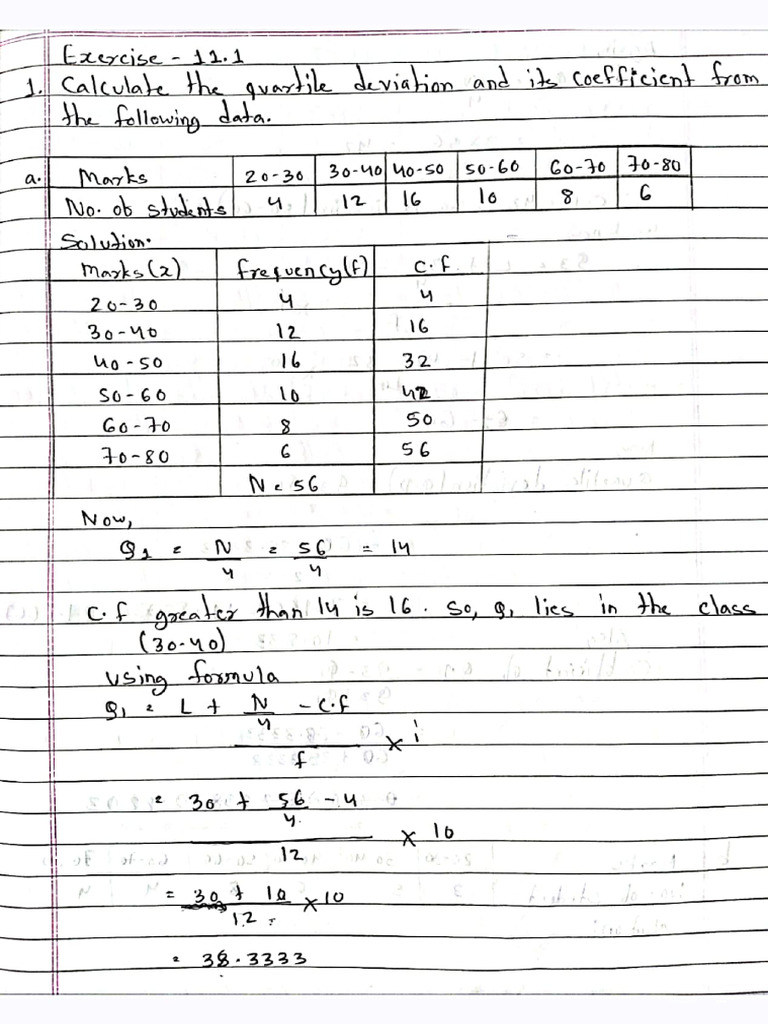 Exercise - 11.1
1. Calculate the quartile deviation and its coefficient from
the following data.
a. Marks 20-30 30-40 40-50 50-60 60-70 70-80
No. of students 4 12 16 10 8 6
Solution.
Marks(x) frequency(f) c.f
20-30 4 4
30-40 12 16
40-50 16 32
50-60 10 42
60-70 8 50
70-80 6 56
N = 56
Now,
Q1 = N/4 = 56/4 = 14
c.f greater than 14 is 16. So, Q1 lies in the class
(30-40)
using formula
Q1 = L + N/4 - c.f
f × i
= 30 + 56/4 - 4
12 × 10
= 30 + 10/12 × 10
= 38.3333